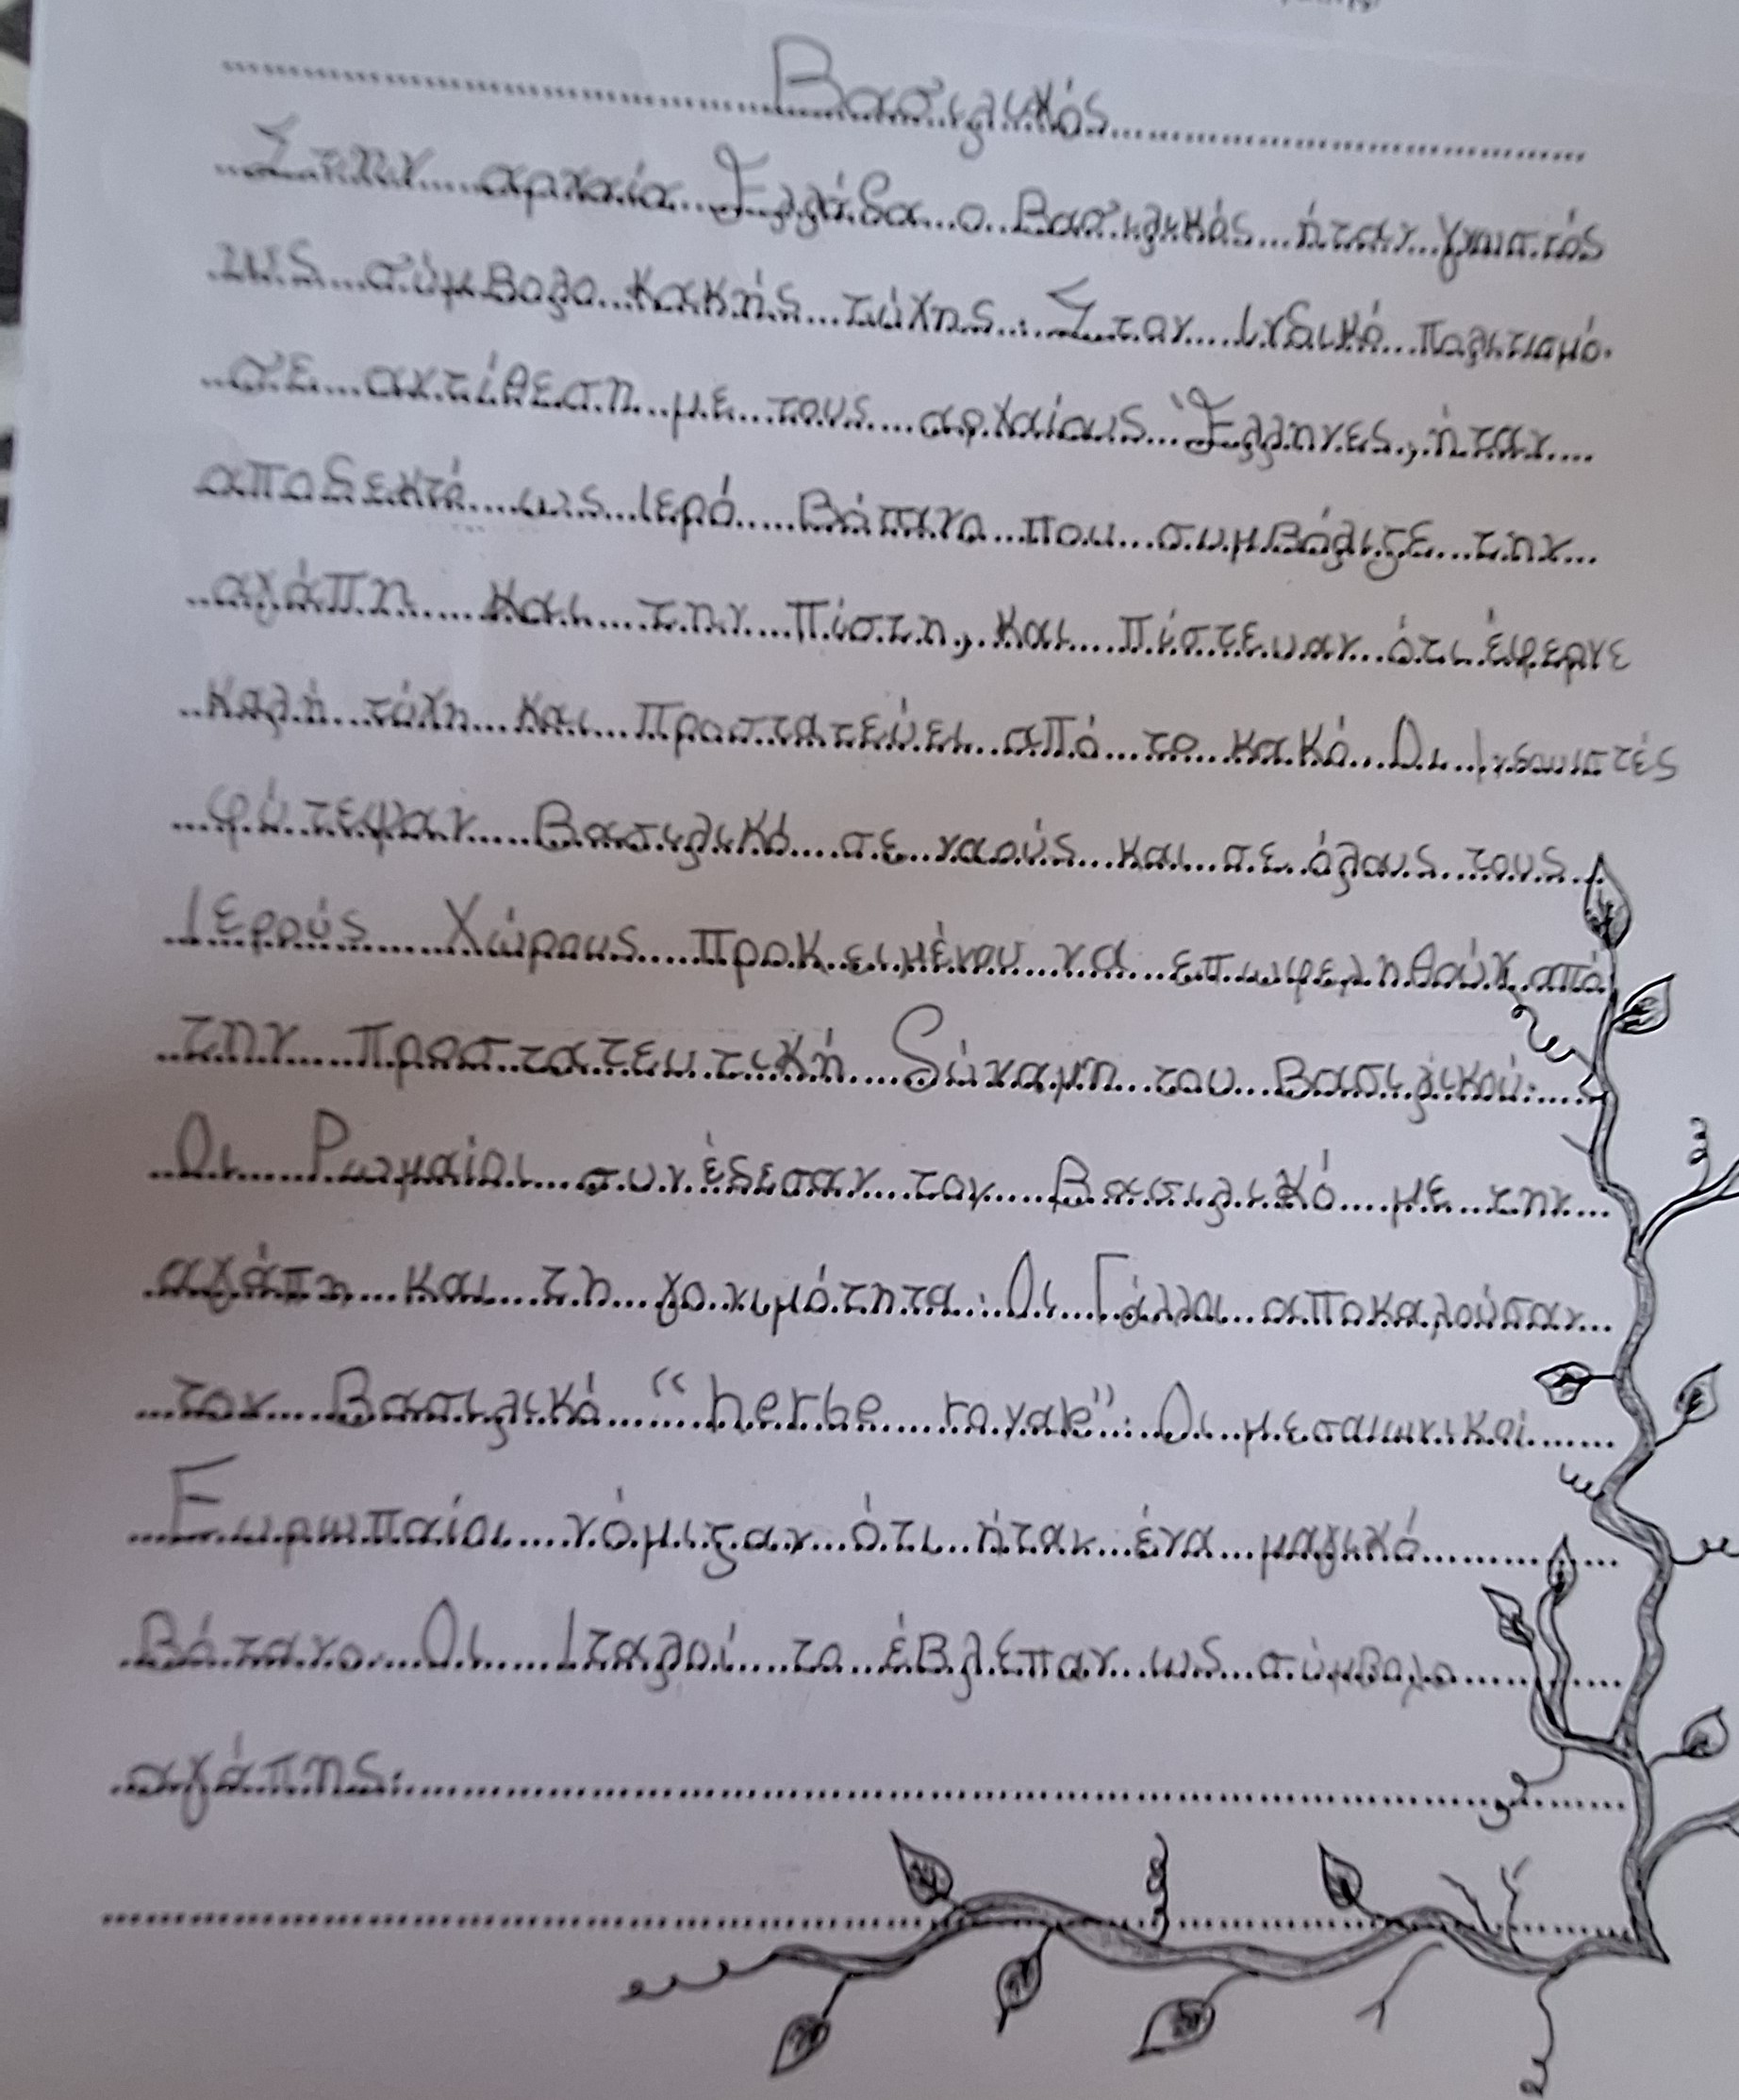 Βασιλικός
Στην αρχαία Ελλάδα ο Βασιλικός ήταν γνωστός
ως σύμβολο κακής τύχης. Στον Ινδικό πολιτισμό.
σε αντίθεση με τους αρχαίους Έλληνες, ήταν
αποδεκτό ως Ιερό Βότανο που συμβόλιζε την
αγάπη και την πίστη, και πίστευαν ότι έφερνε
καλή τύχη και προστατεύει από το κακό. Οι Ινδουιστές
φύτεψαν Βασιλικό σε ναούς και σε όλους τους
Ιερούς Χώρους προκειμένου να επωφεληθούν από
την προστατευτική δύναμη του Βασιλικού.
Οι Ρωμαίοι συνέδεσαν τον Βασιλικό με την
αγάπη και τη γονιμότητα. Οι Γάλλοι αποκαλούσαν
τον Βασιλικό "herbe royale". Οι μεσαιωνικοί
Ευρωπαίοι νόμιζαν ότι ήταν ένα μαγικό
Βότανο. Οι Ιταλοί το έβλεπαν ως σύμβολο
αγάπης.